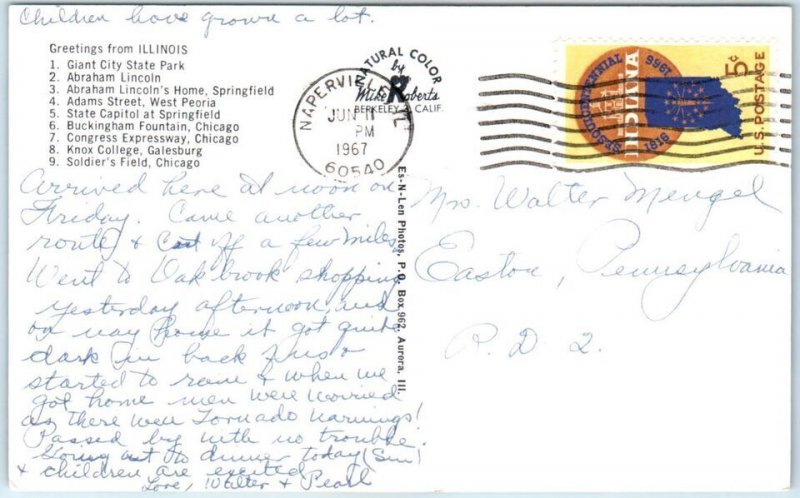 Children have grown a lot.
Greetings from ILLINOIS
1. Giant City State Park
2. Abraham Lincoln
3. Abraham Lincoln's Home, Springfield
4. Adams Street, West Peoria
5. State Capitol at Springfield
6. Buckingham Fountain, Chicago
7. Congress Expressway, Chicago
8. Knox College, Galesburg
9. Soldier's Field, Chicago
NATURAL COLOR
by
Mike Roberts
BERKELEY 2, CALIF.
NAPERVILLE, IL
JUN 11
PM
1967
60540
SESQUICENTENNIAL 1816 1966
INDIANA
5¢
U.S. POSTAGE
Es-N-Len Photos, P.O. Box 962, Aurora, Ill.
Arrived here at noon on
Friday. Came another
route & cut off a few miles.
Went to Oakbrook shopping
yesterday afternoon, and
on way home it got quite
dark in back of us &
started to rain & when we
got home men were worried
as there were Tornado warnings!
Passed by with no trouble.
Going out to dinner today (Sun)
& children are excited.
Love, Walter & Pearl
Mrs. Walter Mengel
Easton, Pennsylvania
R.D. 2.